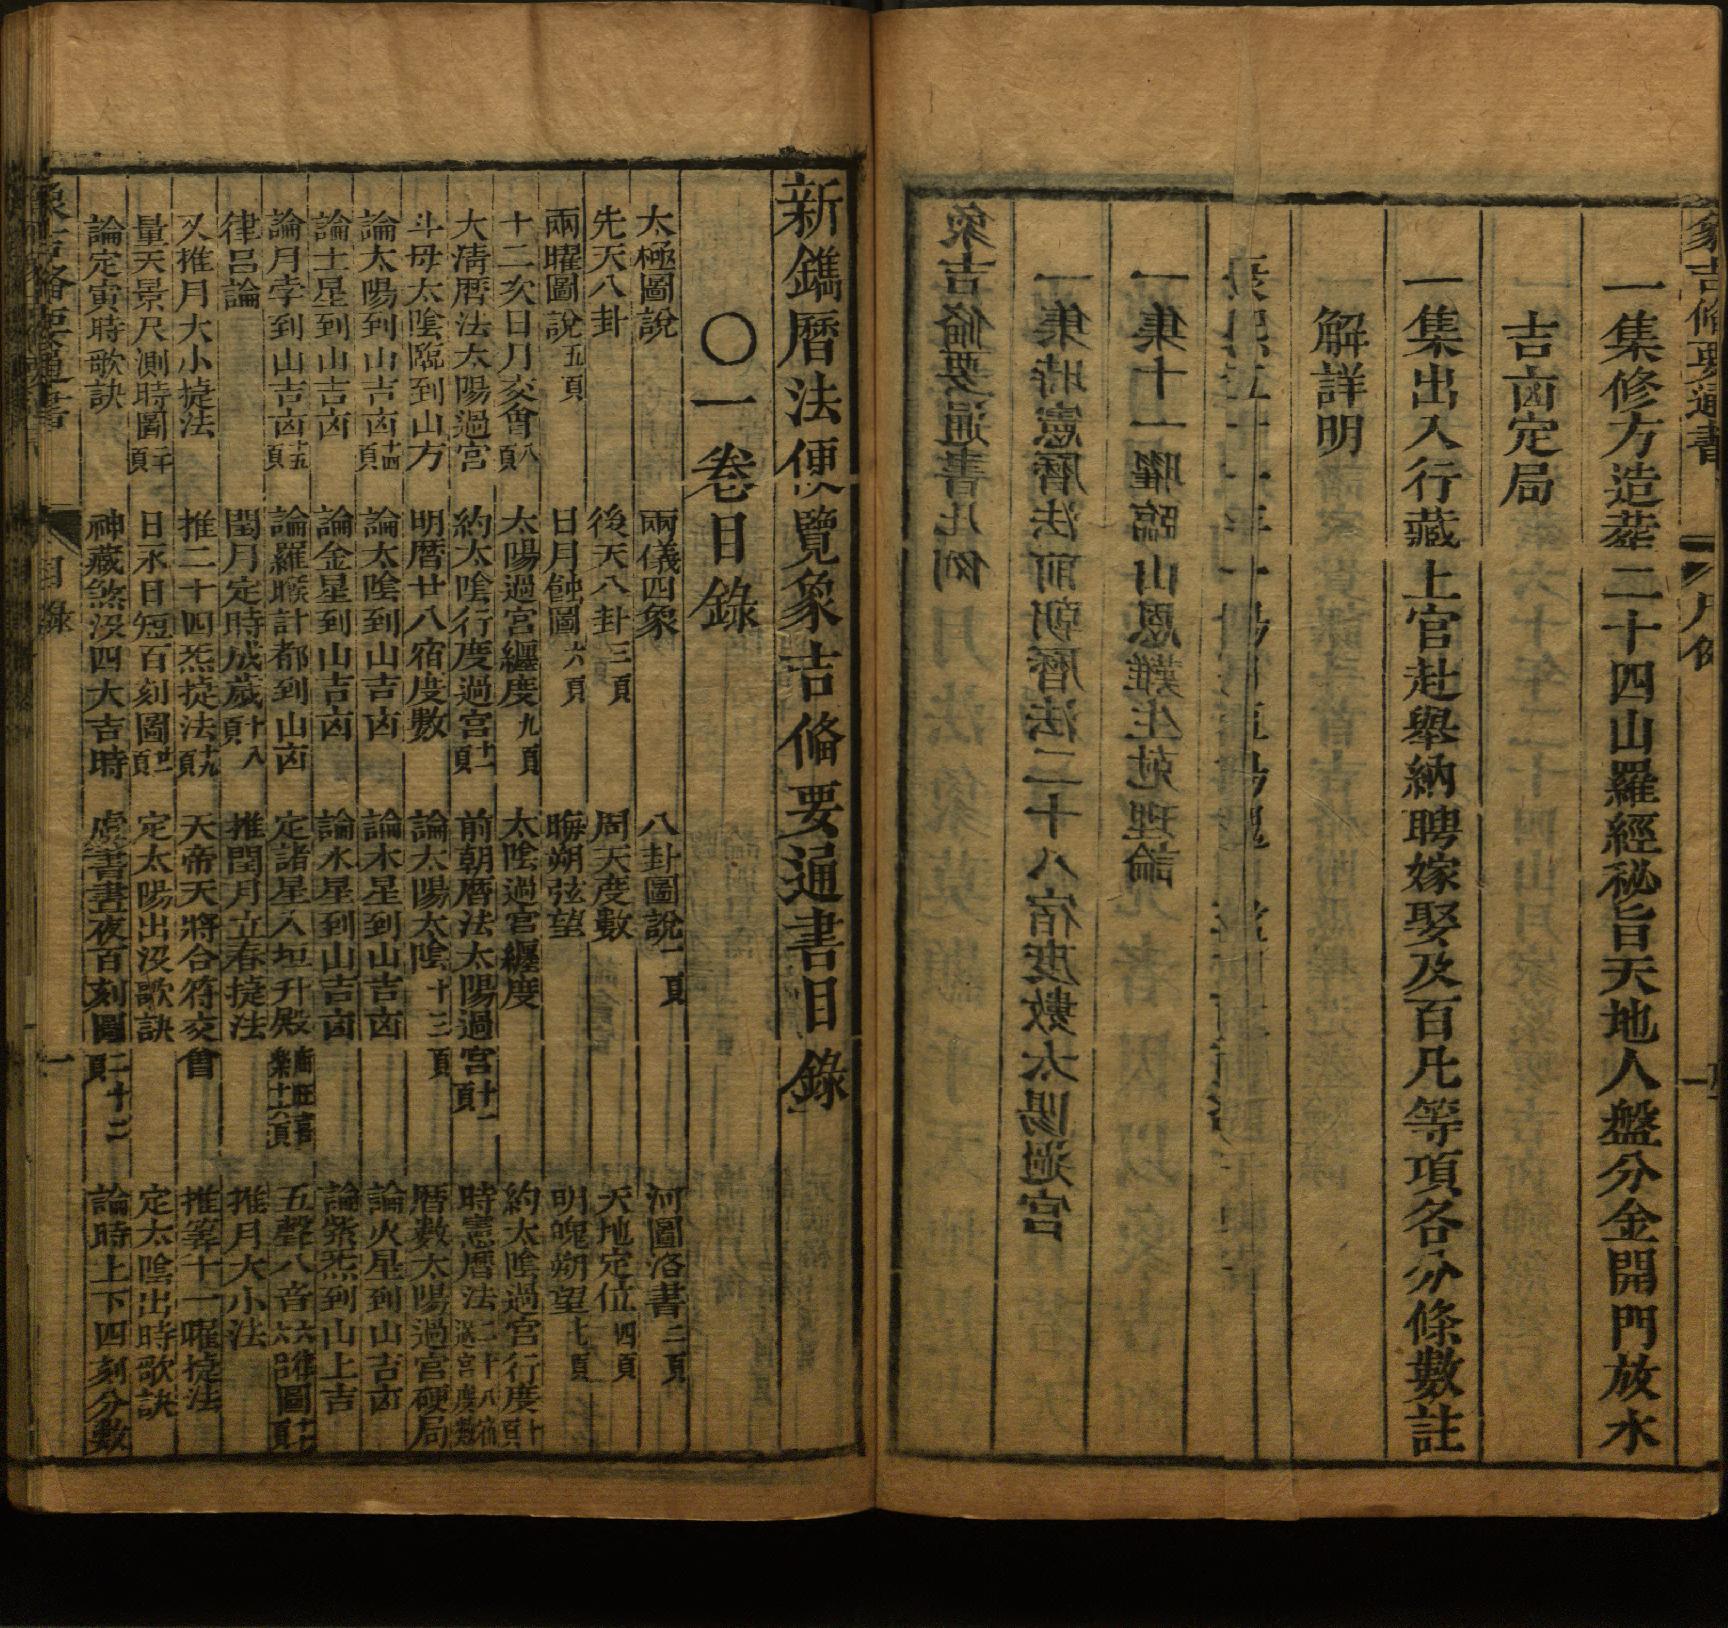 象吉俻要通書
凡例
一集修方造葬二十四山羅經秘旨天地人盤分金開門放水
吉凶定局
一集出入行藏上官赴舉納聘嫁娶及百凡等項各分條數註
解詳明
新鐫曆法便覽象吉俻要通書目錄
〇一卷目錄
太極圖說 兩儀四象 八卦圖說一頁 河圖洛書二頁
先天八卦 後天八卦三頁 周天度數 天地定位四頁
兩曜圖說五頁 日月蝕圖六頁 晦朔弦望 明魄朔望七頁
十二次日月交會八頁 太陽過宮纏度九頁 太陰過宮纏度 約太陰過宮行度十頁
大清曆法太陽過宮 約太陰行度過宮十一頁 前朝曆法太陽過宮十一頁 時憲曆法二十八宿過宮度數
斗母太陰臨到山方 明曆廿八宿度數 論太陽太陰十三頁 曆數太陽過宮硬局
論太陽到山吉凶十四頁 論太陰到山吉凶 論木星到山吉凶 論火星到山吉凶
論土星到山吉凶 論金星到山吉凶 論水星到山吉凶 論紫炁到山上吉
論月孛到山吉凶十五頁 論羅睺計都到山凶 定諸星入垣升殿十六頁 五聲八音六律六呂圖
律呂論 閏月定時成歲十八頁 推閏月立春捷法 推月大小法
又推月大小捷法 推二十四炁捷法十九頁 天帝天將合符交會 推筭十一曜捷法
量天景尺測時圖二十頁 日永日短百刻圖廿一頁 定太陽出没歌訣 定太陰出時歌訣
論定寅時歌訣 神藏煞没四大吉時 虞書晝夜百刻圖二十二頁 論時上下四刻分數
目錄
一